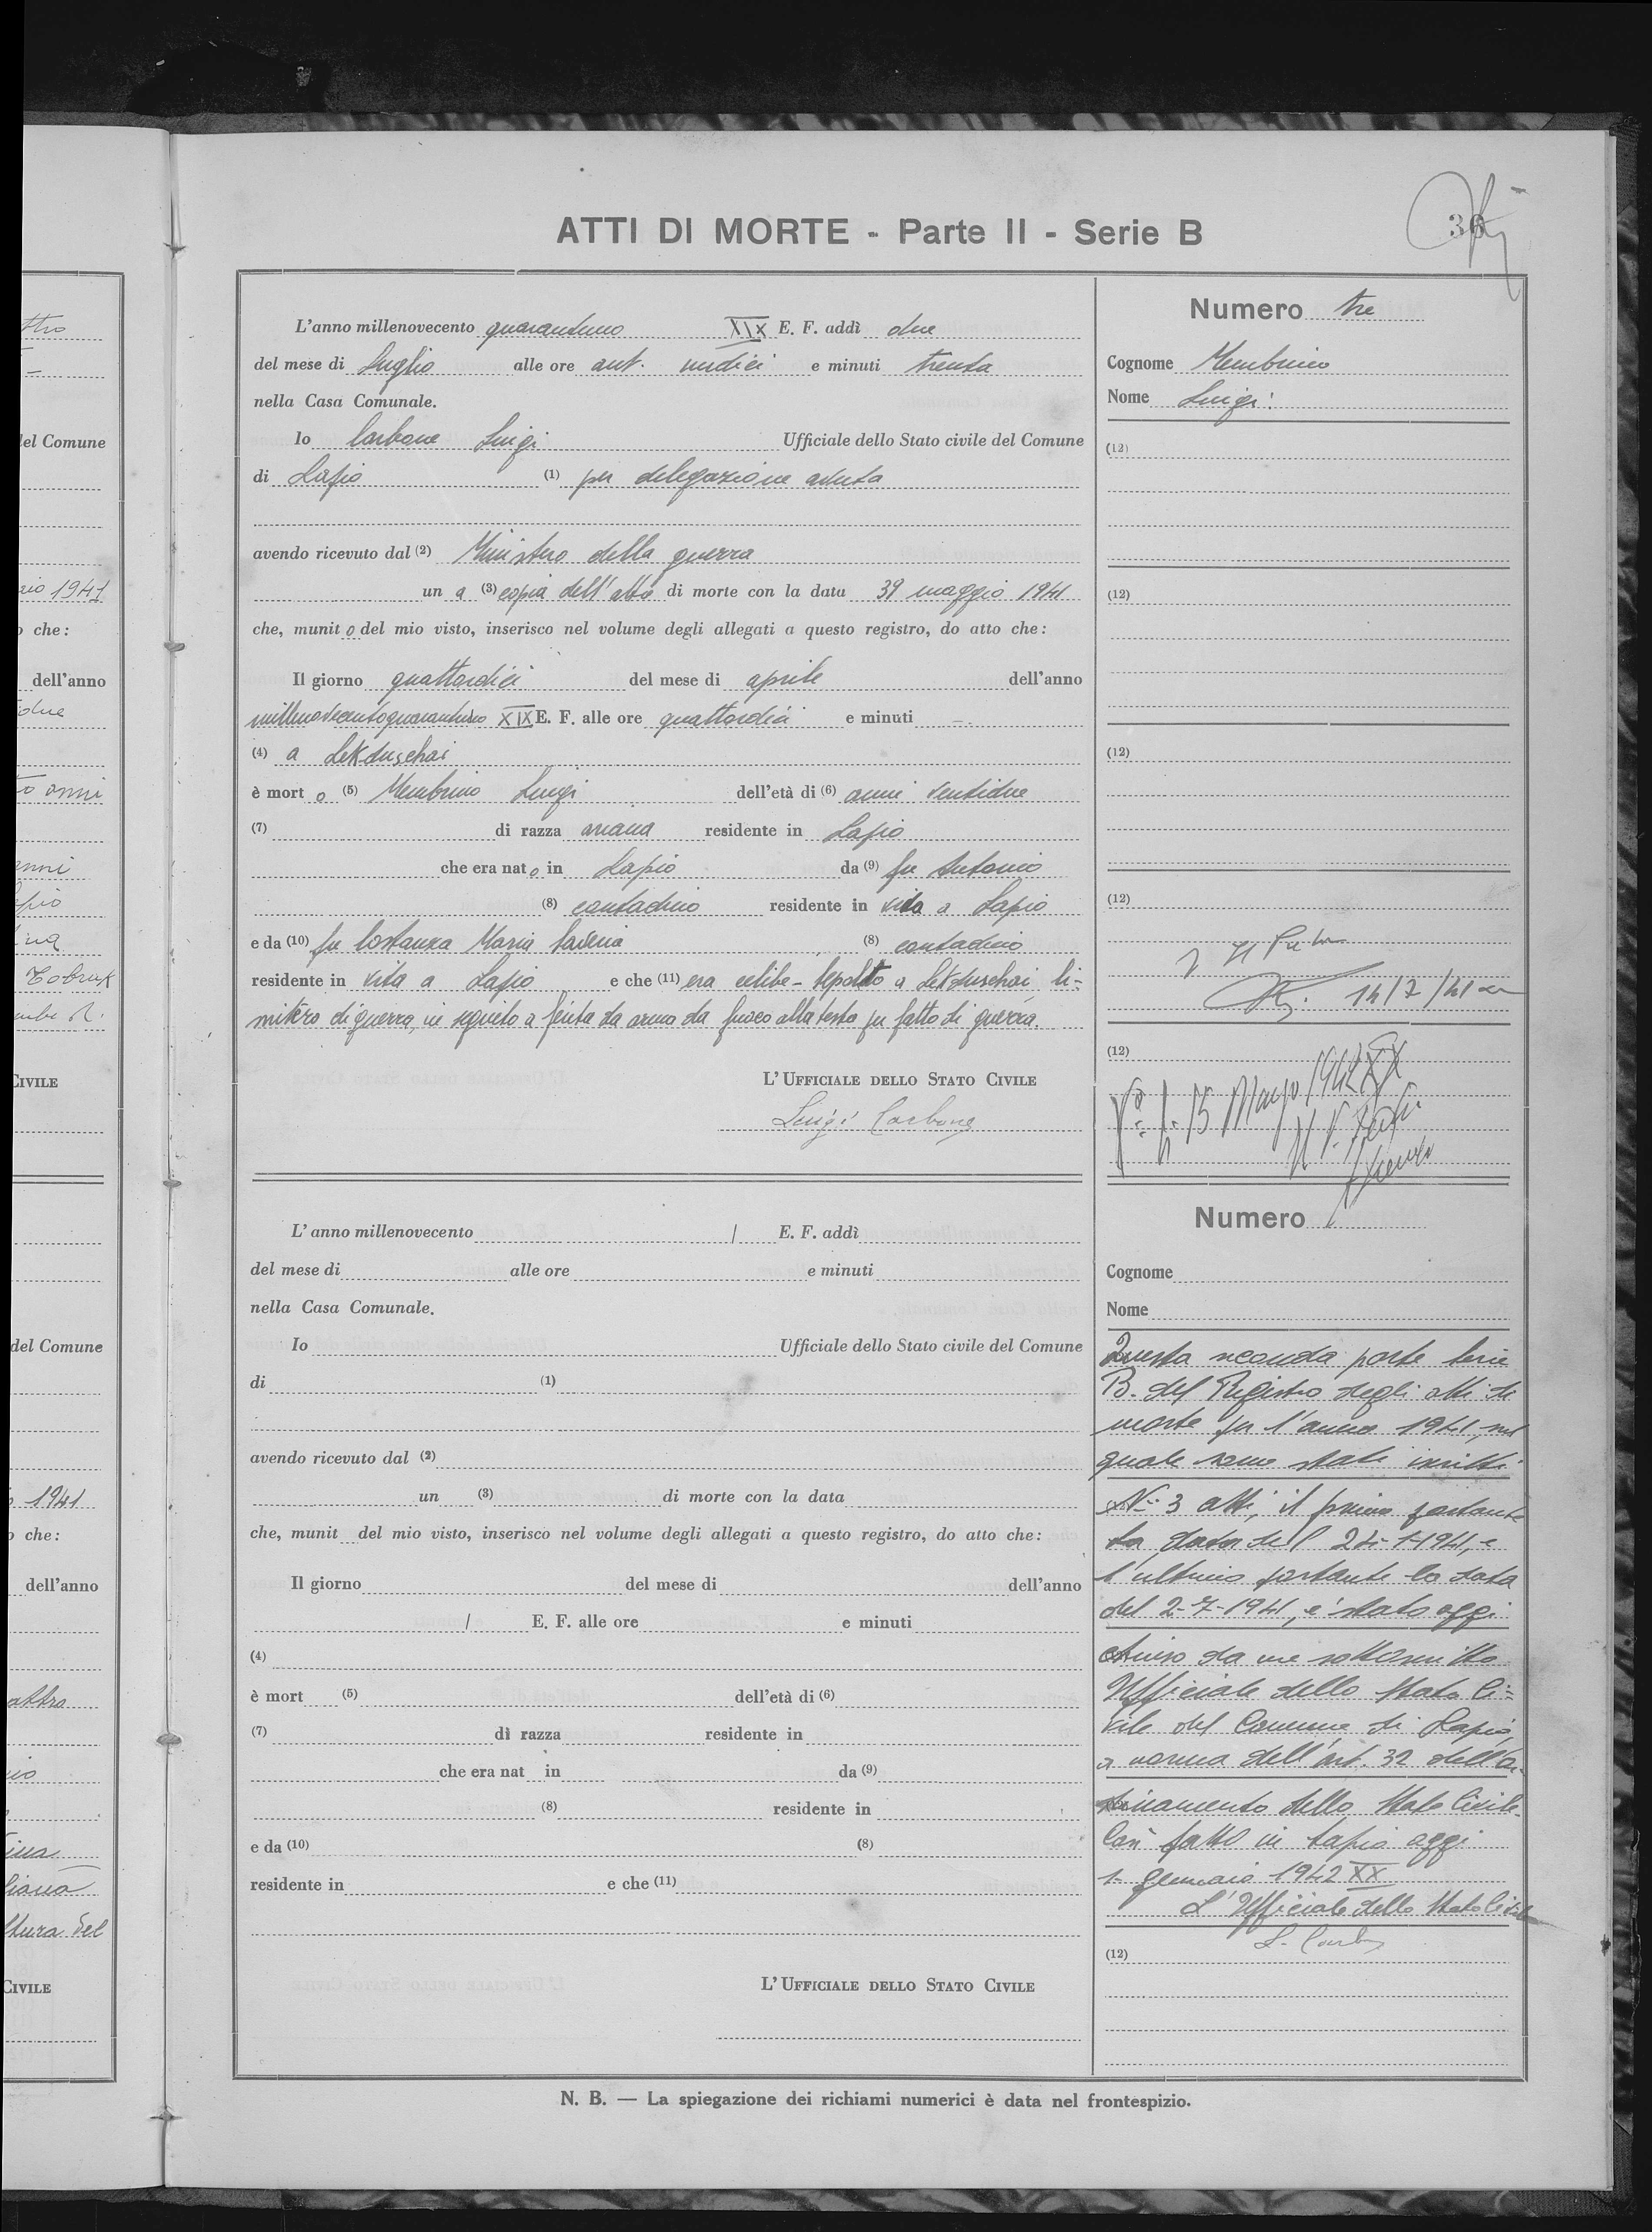 ATTI DI MORTE - Parte II - Serie B
36
L'anno millenovecento quarantuno XIX E. F. addì due
del mese di Luglio alle ore ant. undici e minuti trenta
nella Casa Comunale.
Io Carbone Luigi Ufficiale dello Stato civile del Comune
di Lapio (1) per delegazione avuta
avendo ricevuto dal (2) Ministero della guerra
un a (3) copia dell'atto di morte con la data 39 maggio 1941
che, munit o del mio visto, inserisco nel volume degli allegati a questo registro, do atto che:
Il giorno quattordici del mese di aprile dell'anno
millenovecentoquarantuno XIX E. F. alle ore quattordici e minuti —
(4) a Lekduschai
è mort o (5) Membrino Luigi dell'età di (6) anni ventidue
(7) di razza ariana residente in Lapio
che era nat o in Lapio da (9) fu Antonio
(8) contadino residente in vita a Lapio
e da (10) fu Costanza Maria (8) contadina
residente in vita a Lapio e che (11) era celibe - Sepolto a Lekduschai, ci-
mitero di guerra, in seguito a ferita da arma da fuoco alla testa per fatto di guerra.
L'UFFICIALE DELLO STATO CIVILE
Luigi Carbone
Numero tre
Cognome Membrino
Nome Luigi
(12)
(12)
(12)
(12)
14/7/41
(12)
15 Marzo 1942 XX
L'anno millenovecento / E. F. addì
del mese di alle ore e minuti
nella Casa Comunale.
Io Ufficiale dello Stato civile del Comune
di (1)
avendo ricevuto dal (2)
un (3) di morte con la data
che, munit del mio visto, inserisco nel volume degli allegati a questo registro, do atto che:
Il giorno del mese di dell'anno
/ E. F. alle ore e minuti
(4)
è mort (5) dell'età di (6)
(7) di razza residente in
che era nat in da (9)
(8) residente in
e da (10) (8)
residente in e che (11)
L'UFFICIALE DELLO STATO CIVILE
Numero
Cognome
Nome
Questa seconda parte serie
B. del Registro degli atti di
morte per l'anno 1941, nel
quale sono stati iscritti
N.° 3 atti, il primo portante
la data del 1-1941, e
l'ultimo portante la data
del 2-7-1941, è stato oggi
chiuso da me sottoscritto
Ufficiale dello Stato Ci=
vile del Comune di Lapio,
a norma dell'art. 32 dell'or-
dinamento dello Stato Civile.
Così fatto in Lapio oggi
1- gennaio 1942 XX
L'Ufficiale dello Stato Civile
L. Carbone
(12)
N. B. — La spiegazione dei richiami numerici è data nel frontespizio.
del Comune
aio 1941
che:
dell'anno
due
anni
anni
Tobruk
CIVILE
del Comune
1941
che:
dell'anno
attro
ltura del
CIVILE